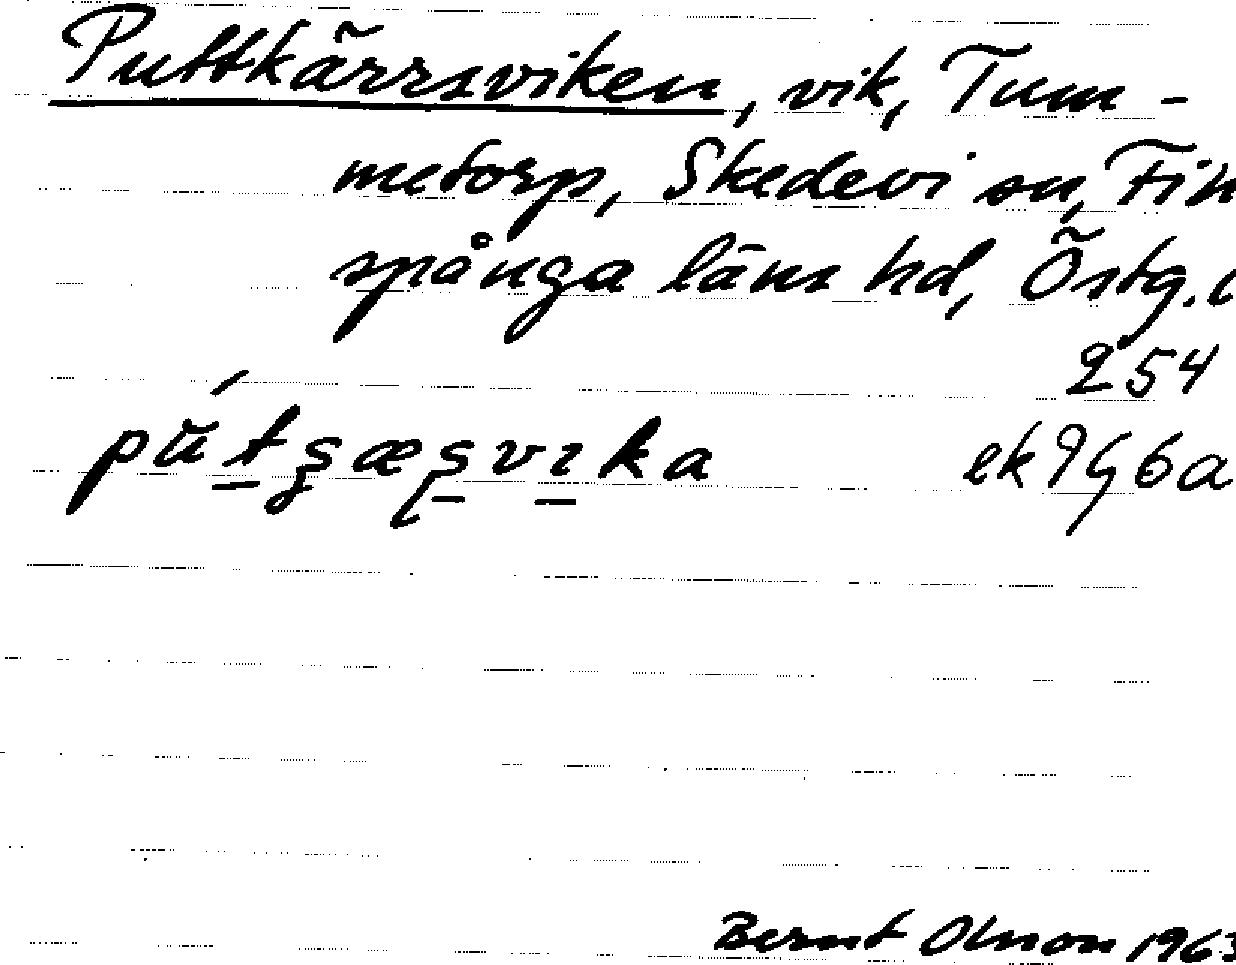 Puttkärrsviken, vik, Tum-
metorp, Skedevi sn, Fin
spånga läns hd, Östg. l
254
ek 9G6a
Bernt Olsson 1963